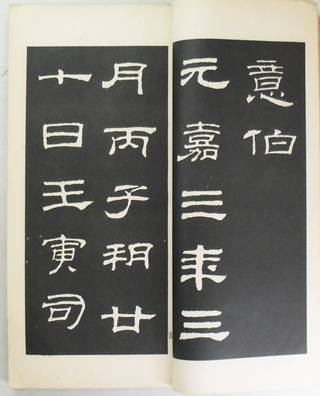 意伯
元嘉三年三
月丙子朔廿
七日壬寅司